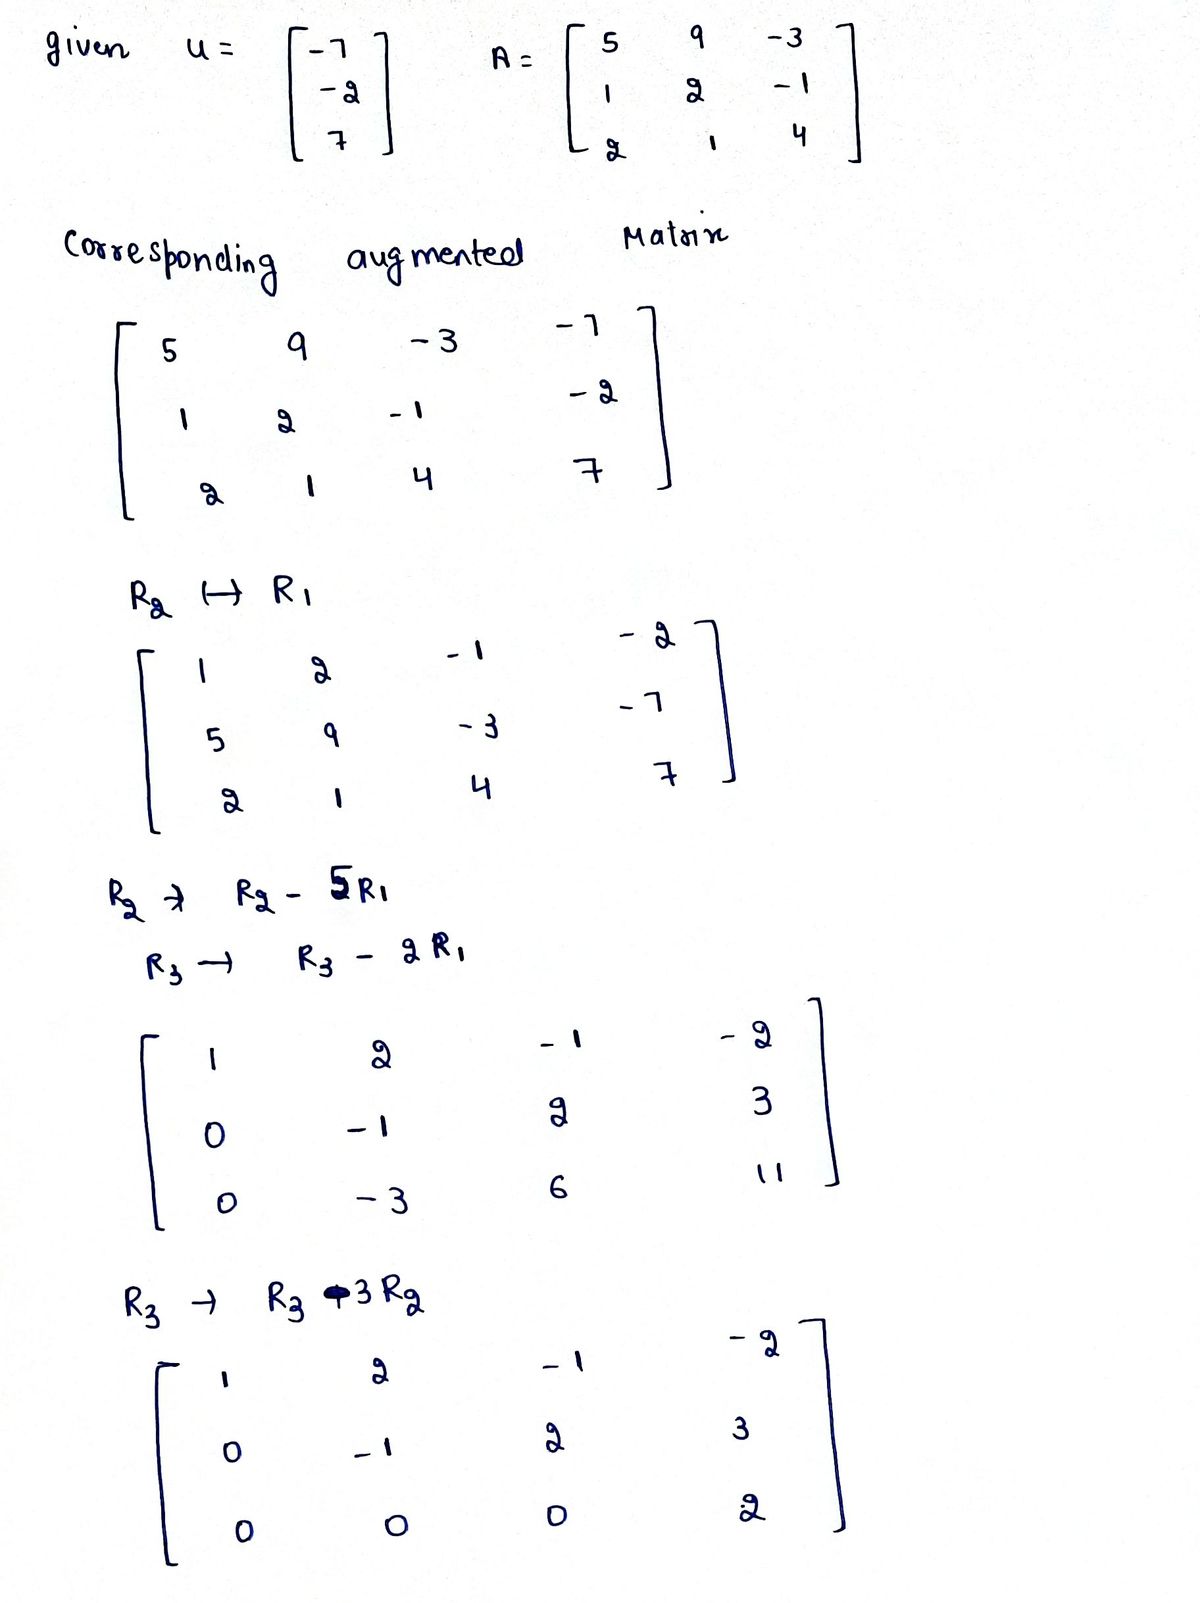 given u = [ -7 -2 7 ] A = [ 5 9 -3 1 2 -1 2 1 4 ]
Corresponding augmented Matrix
5 9 -3 -7
1 2 -1 -2
2 1 4 7
R2 ↔ R1
1 2 -1 -2
5 9 -3 -7
2 1 4 7
R2 → R2 - 5R1
R3 → R3 - 2R1
1 2 -1 -2
0 -1 2 3
0 -3 6 11
R3 → R3 - 3R2
1 2 -1 -2
0 -1 2 3
0 0 0 2